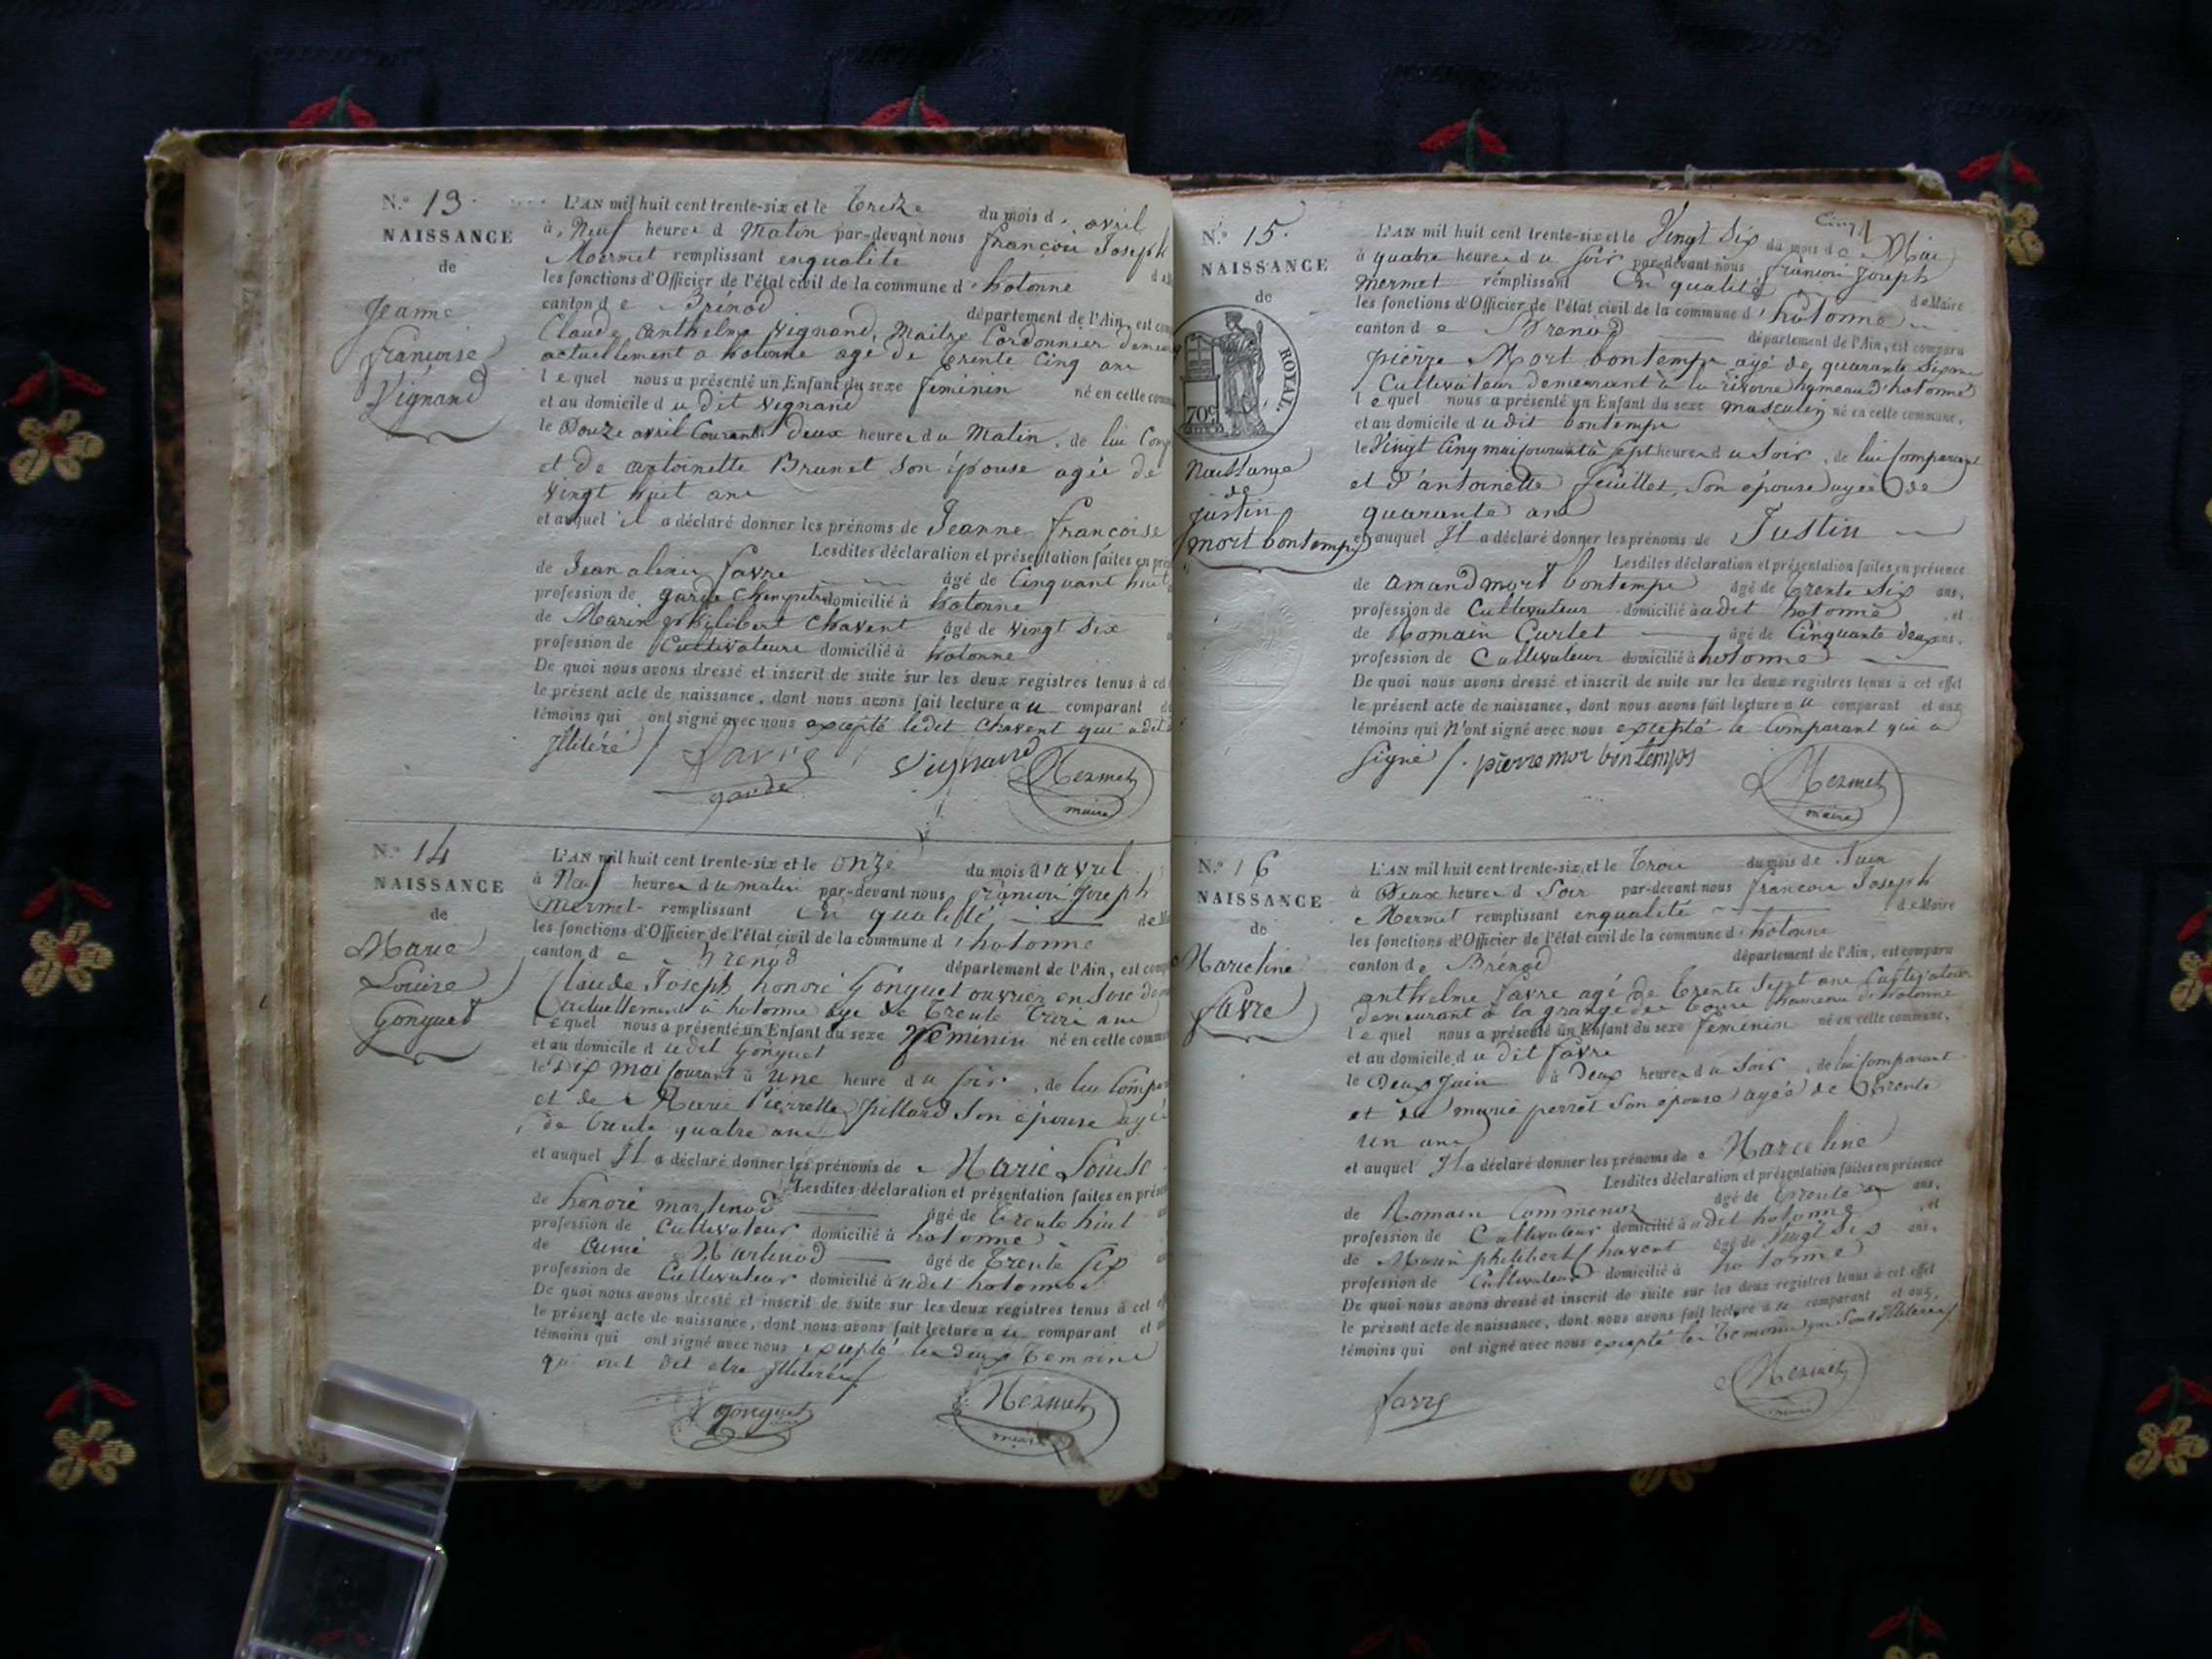 N.º 13.
NAISSANCE
de
Jeanne
françoise
Vignand
L'AN mil huit cent trente-six et le treize du mois d' avril
à Neuf heures d Matin par-devant nous françois Joseph
Mermet remplissant enqualité
les fonctions d'Officier de l'état civil de la commune d' hotonne
canton d e Brénod département de l'Ain, est
Claude anthelme Vignand, Maitre Cordonnier
actuellement a hotonne agé de trente Cinq ans
l e quel nous a présenté un Enfant du sexe feminin né en cette
et au domicile d u dit Vignand
le Douze avril Courant à deux heures du Matin, de lui
et de antoinette Brunet son épouse agée de
Vingt huit ans
et auquel il a déclaré donner les prénoms de Jeanne françoise
Lesdites déclaration et présentation faites en
de Jean alexis favre âgé de Cinquant huit
profession de garde Champetre domicilié à hotonne
de Marin philibert Chavent âgé de Vingt Six
profession de Cultivateur domicilié à hotonne
De quoi nous avons dressé et inscrit de suite sur les deux registres tenus à cet
le présent acte de naissance, dont nous avons fait lecture a u comparant
témoins qui ont signé avec nous excepté ledit Chavent qui a dit
Illitéré / favre Vignand Mermet
garde maire
N.º 14
NAISSANCE
de
Marie
Louise
Gonguet
L'AN mil huit cent trente-six et le onze du mois d'avril
à Neuf heures du matin par-devant nous françois Joseph
mermet remplissant En qualité
les fonctions d'Officier de l'état civil de la commune d' hotonne
canton d e Brenod département de l'Ain, est
Claude Joseph honoré Gonguet ouvrier en Soie
actuellement à hotonne agé de trente trois ans
l e quel nous a présenté un Enfant du sexe feminin né en cette
et au domicile d u dit Gonguet
le Dix mai Courant à une heure du soir, de lui
et de Marie Pierrette pillard Son épouse
de trente quatre ans
et auquel Il a déclaré donner les prénoms de Marie Louise
Lesdites déclaration et présentation faites en
de honoré martinod âgé de trente huit
profession de Cultivateur domicilié à hotonne
de aimé Martinod âgé de trente six
profession de Cultivateur domicilié à udit hotonne
De quoi nous avons dressé et inscrit de suite sur les deux registres tenus à cet
le présent acte de naissance, dont nous avons fait lecture a u comparant et
témoins qui ont signé avec nous excepté les deux temoins
qui ont dit etre Illiterés /
Gonguet Mermet
maire
Cinq
N.º 15.
NAISSANCE
de
ROYAL.
70c
Naissance
de
Justin
mort bontemps
L'AN mil huit cent trente-six et le Vingt Six du mois d e Mai
à quatre heures d u soir par-devant nous françois Joseph
mermet remplissant En qualité de Maire
les fonctions d'Officier de l'état civil de la commune d' hotonne
canton d e Brenod département de l'Ain, est comparu
pierre Mort bontemps agé de quarante six ans
Cultivateur demeurant à la rivoire hameau d'hotonne
l e quel nous a présenté un Enfant du sexe masculin né en cette commune,
et au domicile d u dit bontemps
le Vingt Cinq mai Courant à sept heures d u soir, de lui Comparant
et d'antoinette feuillet, son épouse agée de
quarante ans
et auquel Il a déclaré donner les prénoms de Justin
Lesdites déclaration et présentation faites en présence
de amand mort bontemps âgé de trente six ans,
profession de Cultivateur domicilié à udit hotonne, et
de Romain Curtet âgé de Cinquante deux ans,
profession de Cultivateur domicilié à hotonne
De quoi nous avons dressé et inscrit de suite sur les deux registres tenus à cet effet
le présent acte de naissance, dont nous avons fait lecture a u comparant et aux
témoins qui N'ont signé avec nous excepté le Comparant qui a
signé /. pierre mor bontemps Mermet
maire
N.º 16
NAISSANCE
de
Marceline
favre
L'AN mil huit cent trente-six, et le trois du mois de Juin
à Deux heures d Soir par-devant nous françois Joseph
Mermet remplissant enqualité de Maire
les fonctions d'Officier de l'état civil de la commune d' hotonne
canton d e Brénod département de l'Ain, est comparu
anthelme favre agé de trente sept ans Cultivateur
demeurant à la grange des hameau de hotonne
l e quel nous a présenté un Enfant du sexe feminin né en cette commune,
et au domicile d u dit favre
le Deux Juin à deux heures d u Soir, de lui Comparant
et de marie perret son épouse agée de trente
un ans
et auquel Il a déclaré donner les prénoms de Marceline
Lesdites déclaration et présentation faites en présence
de Romain âgé de trente ans,
profession de Cultivateur domicilié à udit hotonne, et
de Marin philibert Chavent âgé de Vingt Six ans,
profession de Cultivateur domicilié à hotonne
De quoi nous avons dressé et inscrit de suite sur les deux registres tenus à cet effet
le présent acte de naissance, dont nous avons fait lecture a u comparant et aux
témoins qui ont signé avec nous excepté les temoins qui sont Illiterés /
favre Mermet
maire